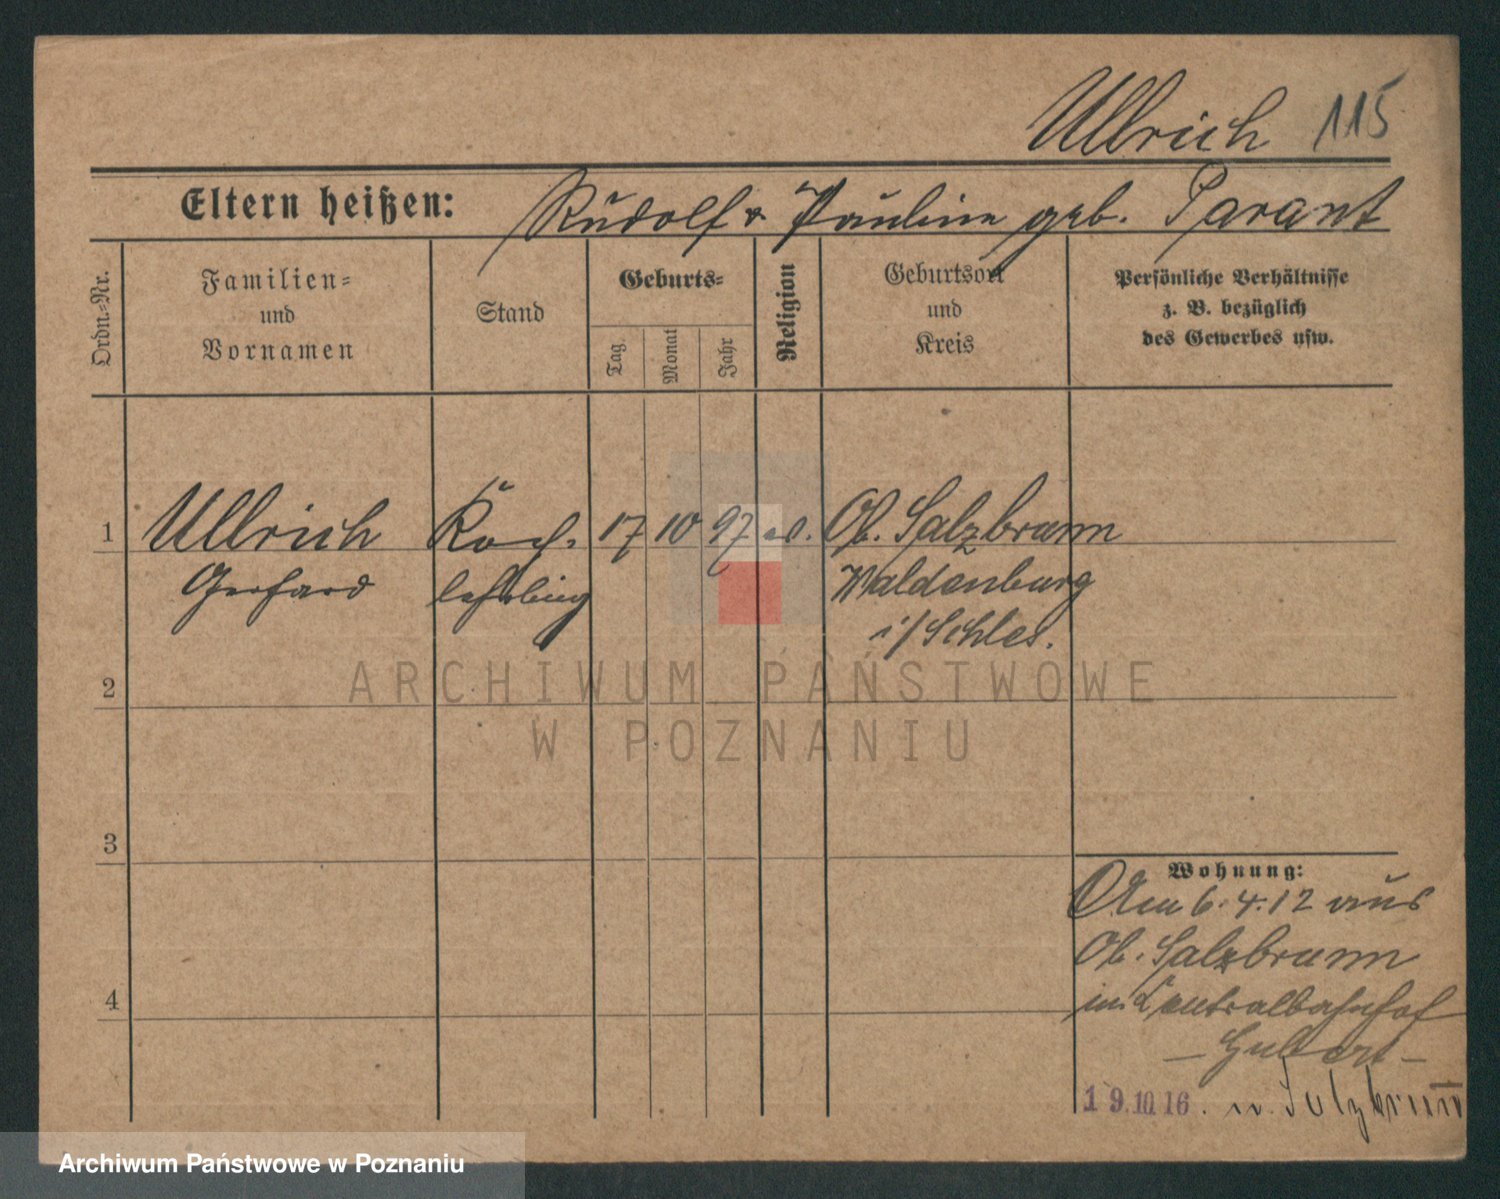 Ullrich 115
Eltern heißen: Rudolf & Pauline geb. Parant
Ordn.-Nr.
Familien-
und
Vornamen
Stand
Geburts-
Tag
Monat
Jahr
Religion
Geburtsort
und
Kreis
Persönliche Verhältnisse
z. B. bezüglich
des Gewerbes usw.
1 Ullrich Koch- 17 10 97 ev. Ob. Salzbrunn
Gerhard lehrling Waldenburg
i/Schles.
2
3
4
Wohnung:
Am 6.4.12 aus
Ob. Salzbrunn
in Centralbahnhof
19.10.16. n. Salzbrunn
ARCHIWUM PAŃSTWOWE
W POZNANIU
Archiwum Państwowe w Poznaniu